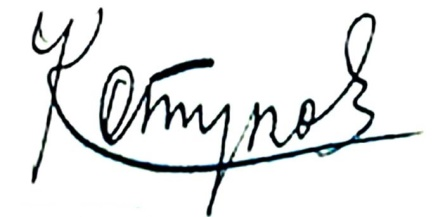 Котупов